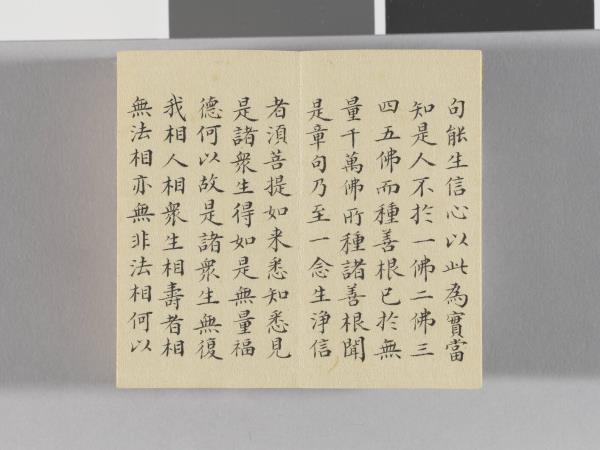 句能生信心以此為實當
知是人不於一佛二佛三
四五佛而種善根已於無
量千萬佛所種諸善根聞
是章句乃至一念生淨信
者須菩提如来悉知悉見
是諸衆生得如是無量福
德何以故是諸衆生無復
我相人相衆生相壽者相
無法相亦無非法相何以